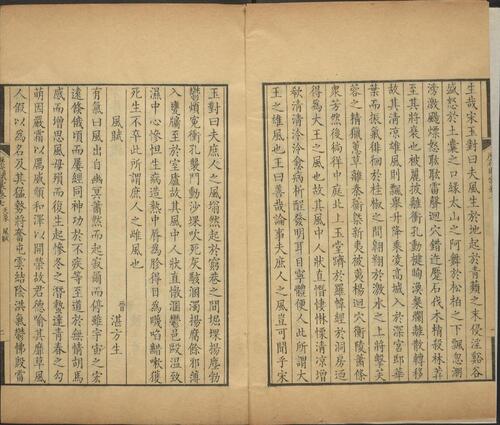 生哉宋玉對曰夫風生於地起於青蘋之末侵淫谿谷
盛怒於土囊之口緣太山之阿舞於松柏之下飄忽淜
滂激颺熛怒耾耾雷聲迴穴錯迕蹷石伐木梢殺林莽
至其將衰也被麗披離衝孔動楗眴渙粲爛離散轉移
故其清涼雄風則飄舉升降乘凌高城入於深宮邸華
葉而振氣徘徊於桂椒之間翱翔於激水之上將擊芙
蓉之精獵蕙草離秦衡槩新夷被荑楊迴穴衝陵蕭條
衆芳然後徜徉中庭北上玉堂躋於羅幃經於洞房迺
得為大王之風也故其風中人狀直憯悽惏慄清涼增
欷清清泠泠愈病析酲發明耳目寧體便人此所謂大
王之雄風也王曰善哉論事夫庶人之風豈可聞乎宋
玉對曰夫庶人之風塕然起於窮巷之間堀堁揚塵勃
鬱煩寃衝孔襲門動沙堁吹死灰駭溷濁揚腐餘邪薄
入甕牖至於室廬故其風中人狀直憞溷鬱邑毆溫致
濕中心慘怛生病造熱中脣為胗得目為篾啗齰嗽獲
死生不卒此所謂庶人之雌風也
風賦
晉湛方生
有氣曰風出自幽冥蕭然而起寂爾而停離宇宙之
遠倏俄頃而屢經同神功於不疾等至道於無情胡馬
感而增思風母殞而復生起慘冬之潛蟄達青春之勾
萌因嚴霜以厲威頼和澤以開榮故君德喻其靡草風
人假以為名及其猛勢將奮屯雲結陰洪氣鬱怫殷雷